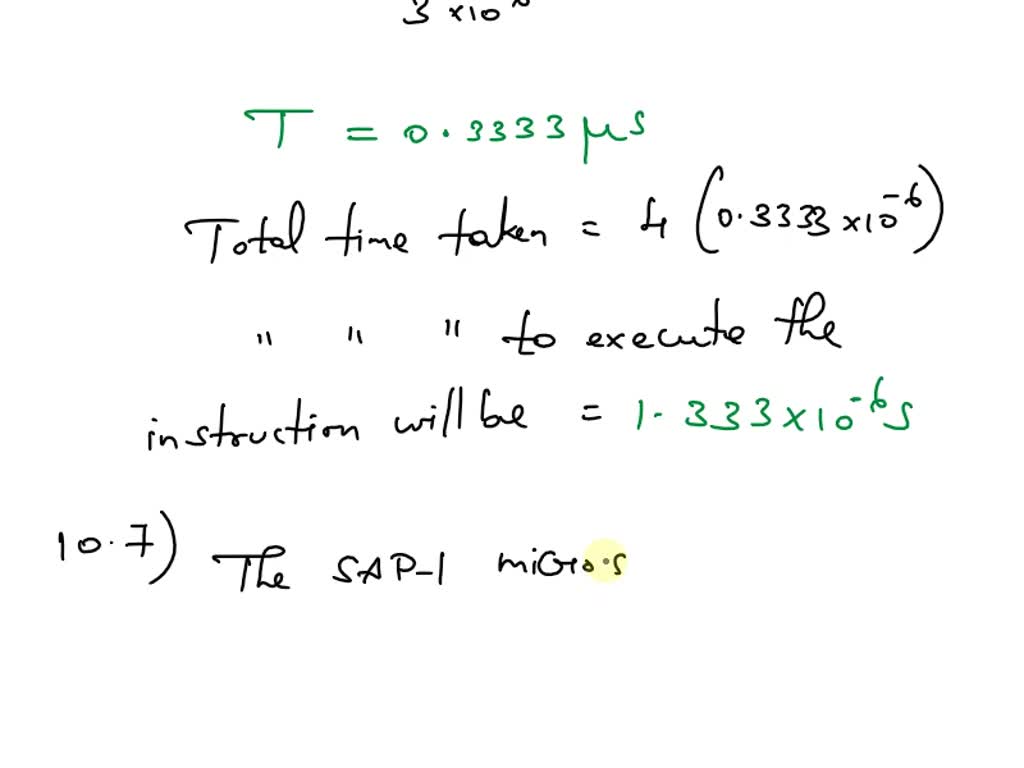 3 ×10
T = 0.3333 μs
Total time taken = 4 (0.3333 ×10⁻⁶)
" " " to execute the
instruction will be = 1.333×10⁻⁶s
10.7) The SAP-1 micros